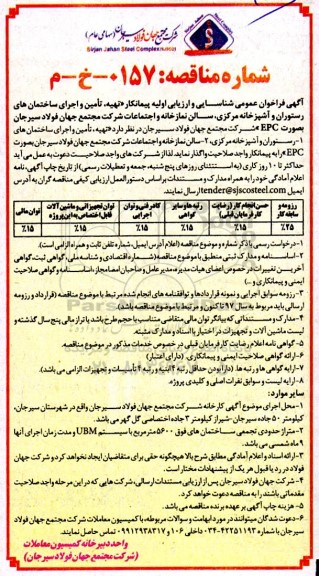 شرکت مجتمع جهان فولاد سیرجان (سهامی عام)
Sirjan Jahan Steel Complex
شماره مناقصه: ۰۱۵۷-خ-م
آگهی فراخوان عمومی شناسایی و ارزیابی اولیه پیمانکار «تهیه، تأمین و اجرای ساختمان های
رستوران و آشپزخانه مرکزی، سالن نمازخانه و اجتماعات شرکت مجتمع جهان فولاد سیرجان
بصورت EPC» شرکت مجتمع جهان فولاد سیرجان در نظر دارد «تهیه، تأمین و اجرای ساختمان های
۱-رستوران و آشپزخانه مرکزی، ۲-سالن نمازخانه و اجتماعات شرکت مجتمع جهان فولاد سیرجان بصورت
EPC» را به پیمانکار واجد صلاحیت واگذار نماید. لذا از شرکت های واجد صلاحیت دعوت به عمل می آید
حداکثر تا ۱۰ روز کاری (به استثنای روزهای پنج شنبه، جمعه و تعطیلات رسمی) از تاریخ چاپ آگهی، نامه
اعلام آمادگی خود را به همراه مدارک و مستندات براساس دستورالعمل ارزیابی کیفی مناقصه گران به آدرس
ایمیل tender@sjscosteel.com ارسال نمایند.
رزومه و سابقه کار | حسن انجام کار (رضایت کارفرمایان قبلی) | رتبه ها و سایر گواهی | کادر فنی و توان اجرایی | توان تجهیزاتی و ماشین آلات قابل اختصاص به این پروژه | توان مالی
٪۲۵ | ٪۱۵ | ٪۱۵ | ٪۱۵ | ٪۱۵ | ٪۱۵
۱-درخواست رسمی با ذکر شماره و موضوع مناقصه (اعلام آدرس ایمیل، شماره تلفن ثابت و همراه الزامی است).
۲-اساسنامه و مدارک ثبتی منطبق با موضوع مناقصه (شماره اقتصادی و شناسه ملی، گواهی ثبت، گواهی
آخرین تغییرات در خصوص اعضای هیات مدیره، مدیرعامل و صاحبان امضا مجاز، اساسنامه و گواهی صلاحیت
ایمنی و پیمانکاری و...)
۳-رزومه سوابق اجرایی و نمونه قراردادها و توافقنامه های انجام شده مرتبط با موضوع مناقصه (قرارداد و رزومه
ارسالی باید مربوط به سال ۹۷ تاکنون و مرتبط با موضوع مناقصه باشد).
۴-مدارک و مستنداتی که بیانگر توان مالی متقاضی متناسب با حجم طرح باشد یا تراز مالی پنج سال گذشته و
لیست ماشین آلات و تجهیزات در اختیار با اسناد و مدارک مثبته.
۵-گواهی نامه اعلام رضایت کارفرمایان قبلی در خصوص خدمات مذکور در موضوع مناقصه.
۶-ارائه گواهی صلاحیت ایمنی و پیمانکاری. (دارای اعتبار)
۷-ارایه گواهی ها و رتبه ها. (دارا بودن حداقل رتبه ۴ ابنیه و رتبه ۴ تأسیسات و تجهیزات الزامی می باشد).
۸-ارایه لیست و سوابق نفرات اصلی و کلیدی پروژه.
سایر موارد:
۱-محل اجرای موضوع آگهی کارخانه شرکت مجتمع جهان فولاد سیرجان واقع در شهرستان سیرجان،
کیلومتر ۵۰ جاده سیرجان-شیراز کیلومتر ۳ جاده اختصاصی گل گهر می باشد.
۲-متراژ حدودی تجمعی ساختمان های فوق ۵۶۰۰ متر مربع با سیستم UBM و مدت زمان اجرای آنها
۹ ماه شمسی می باشد.
۳-ارائه اسناد و اعلام آمادگی مطابق شرح بالا هیچگونه حقی برای متقاضیان ایجاد نخواهد کرد و شرکت جهان
فولاد در رد یا قبول هر یک از پیشنهادات مختار است.
۴-شرکت جهان فولاد سیرجان پس از ارزیابی مستندات ارسالی، شرکت هایی که در این مرحله واجد صلاحیت
مقدماتی باشند را به مناقصه دعوت خواهد کرد.
۵-هزینه چاپ آگهی بر عهده برنده مناقصه می باشد.
۶-دعوت شدگان میتوانند در مورد ابهامات و سوالات مربوطه، با کمیسیون معاملات شرکت مجتمع جهان فولاد
سیرجان با شماره ۴۲۲۵۱۱۹۳-۰۳۴ داخلی ۱۰۶ و ۰۹۹۱۲۹۳۸۳۱۷ تماس حاصل نمایند.
واحد دبیرخانه کمیسیون معاملات
(شرکت مجتمع جهان فولاد سیرجان)